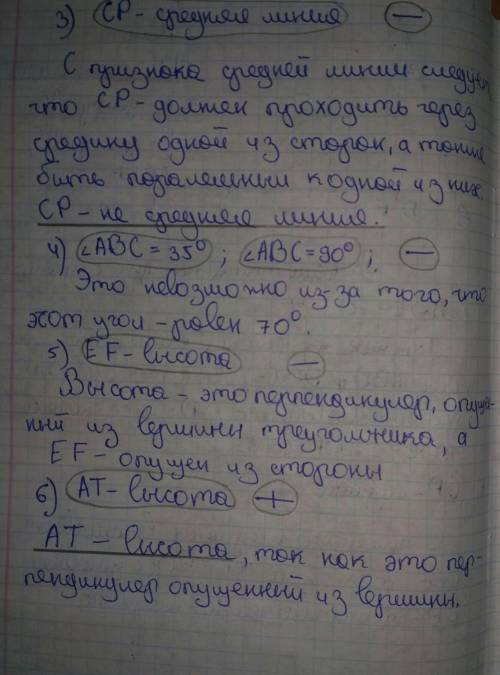 3) CP - средняя линия —
С признака средней линии следует,
что CP - должен проходить через
средину одной из сторон, а также
быть паралельным к одной из них.
CP - не средняя линия.
4) ∠ABC = 35°; ∠ABC = 90°; —
Это невозможно из-за того, что
этот угол - равен 70°.
5) EF - высота —
Высота - это перпендикуляр, опущен-
ный из вершины треугольника, а
EF - опущен из стороны
6) AT - высота +
AT - высота, так как это пер-
пендикуляр опущенный из вершины.